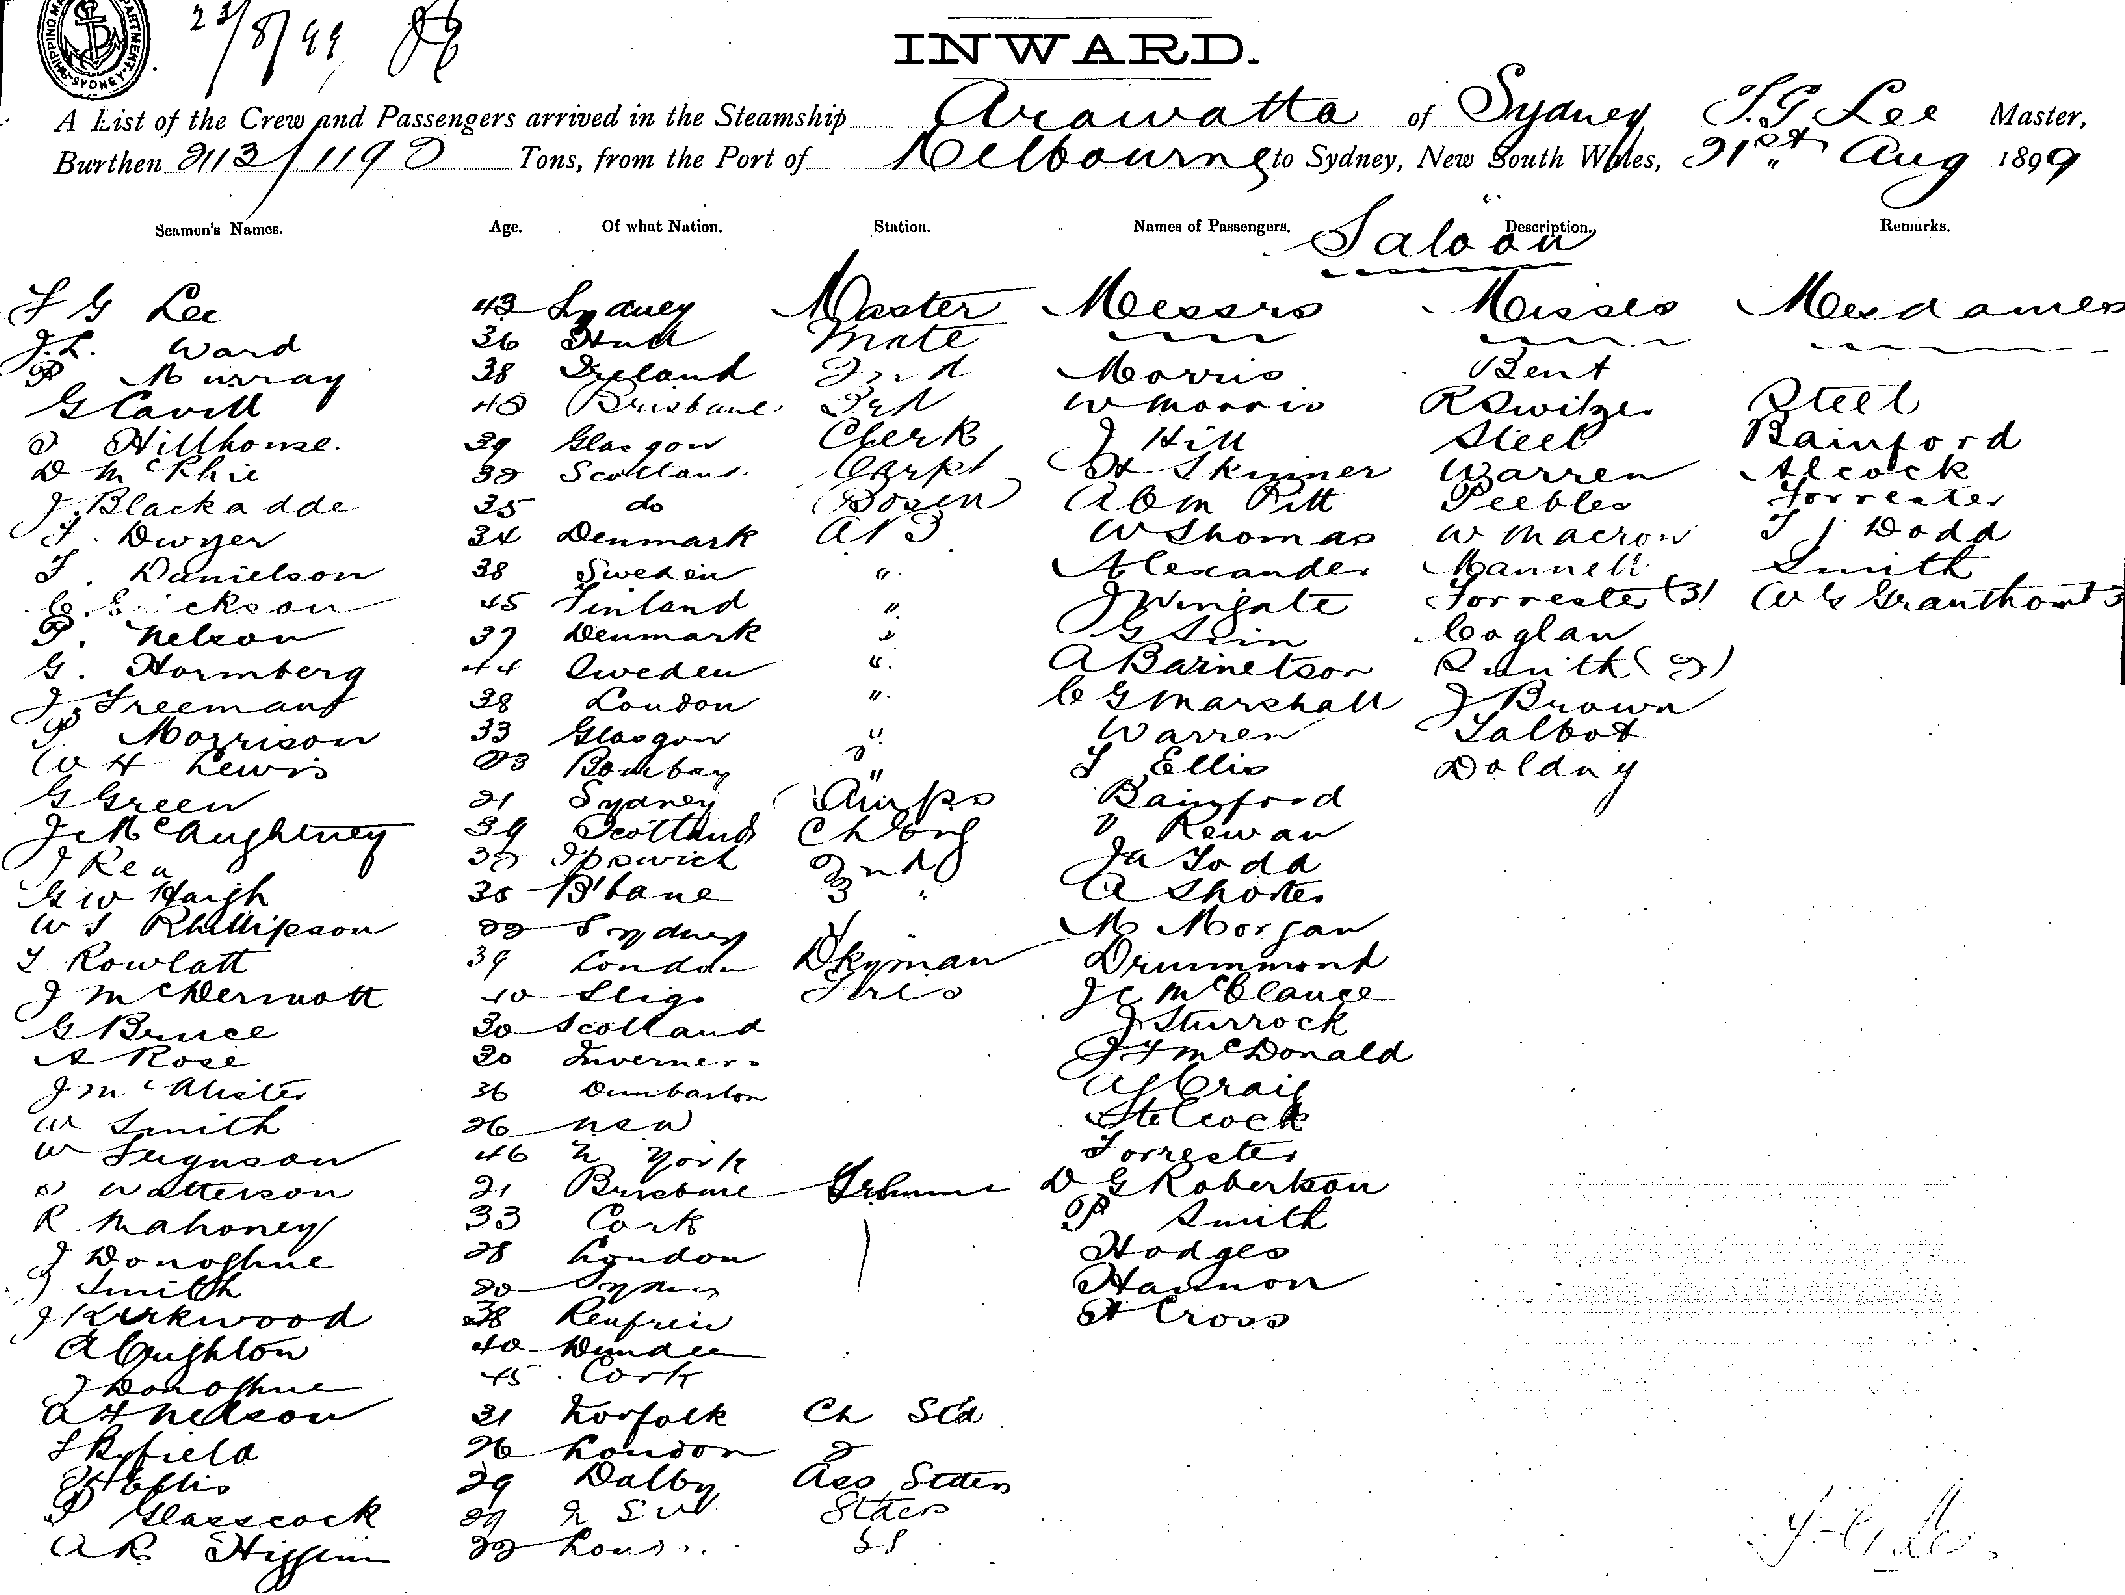 23/8/99
INWARD.
A List of the Crew and Passengers arrived in the Steamship Arawatta of Sydney T. G Lee Master,
Burthen 2113/1192 Tons, from the Port of Melbourne to Sydney, New South Wales, 21st Aug 1899
Seamen's Names. Age. Of what Nation. Station. Names of Passengers. Description. Remarks.
Saloon
T G Lee 43 Sydney Master Messrs Misses Mesdames
J. L. Ward 36 Hull Mate
P Murray 38 Ireland 2nd Morris Bent
G Cavill 40 Brisbane 3rd W Morris R Switzer Steel
Hillhouse 29 Glasgow Clerk J Hill Steel Bainford
D McPhie 32 Scotland Carpt H Skinner Warren Alcock
J Blackadde 35 do Bosen Pitt Peebles Forrester
T. Dwyer 34 Denmark A B W Thomas W Macrow T J Dodd
T. Danielson 38 Sweden " Alexander Mannell Smith
45 Finland " J Wingate Forrester (3)
P. Nelson 37 Denmark " G Coglan
G. Hormberg 44 Sweden " A Barnetson Smith (2)
J. Freeman 28 London " C G Marshall J Brown
P. Morrison 33 Glasgow " Warren Talbot
W H Lewis 23 Bombay " T Ellis
G Green 21 Sydney Bainford
J McAughtney 39 Scotland Kewan
J Rea Ipswich 2nd Todd
G W Haigh 30 B'bane 3 " A Shorter
W S Phillipson 22 Sydney 4 M Morgan
T Rowlatt 39 London Dkyman Drummond
J McDermott 40 Sligo Fires J C McClance
G Bruce 30 Scotland J Sturrock
A Rose 30 Inverness J F McDonald
J McAlister 36 Dumbarton Craig
W Smith 26 NSW Stelcock
W Ferguson 46 N York Forrester
Watterson 21 Brisbane D G Robertson
R Mahoney 33 Cork P Smith
J Donoghue 28 London Hodges
J Smith 30 Sydney Hannon
J Kirkwood 38 Renfrew H Cross
A Crighton 40 Dundee
J Donoghue 45 Cork
A H Nelson 31 Norfolk Ch Std
26 London 2
29 Dalby Ass Stden
P Glasscock 29 N S W Stders
A R Higgin 22